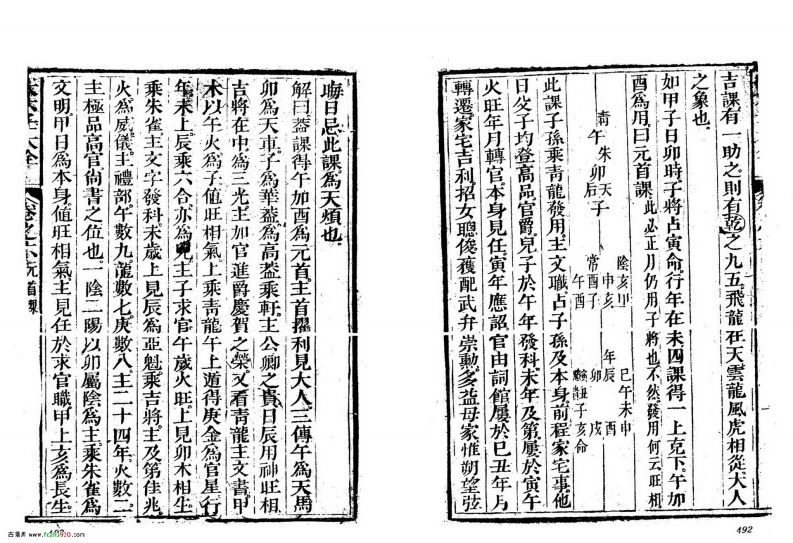 吉課有一助之則有乾之九五飛龍在天雲龍風虎相從大人
之象也
如甲子日卯時子將占寅命行年在未四課得一上克下午加
酉為用曰元首課此必正月仍用子將也不然發用何云旺相
青 朱 天
午 卯 子
后
陰
亥甲
申亥
常
酉子
午酉
年
辰 巳午未申
酉
卯 戌
丑子亥
命
此課子孫乘青龍發用主文職占子孫及本身前程家宅事他
日父子均登高品官爵兒子於午年發科未年及第屢於寅午
火旺年月轉官本身見任寅年應詔官由詞館屢於巳丑年月
轉遷家宅吉利招女聰俊獲配武弁崇勳多益母家惟朔望弦
晦日忌此課為天煩也
解曰葢課得午加酉為元首主首擢利見大人三傳午為天馬
卯為天車子為華葢為高葢乘軒主公卿之貴日辰用神旺相
吉將在中為三光主加官進爵慶賀之榮又看青龍主文書甲
木以午火為子值旺相氣上乘青龍午上遁得庚金為官星行
年未上辰乘六合亦為兒主子求官午歲火旺上見卯木相生
乘朱雀主文字發科未歲上見辰為亞魁乘吉將主及第佳兆
火為威儀主禮部午數九龍數七庚數八主二十四年火數二
主極品高官尚書之位也一陰二陽以卯屬陰為主乘朱雀為
文明甲日為本身值旺相氣主見任於求官職甲上亥為長生
492